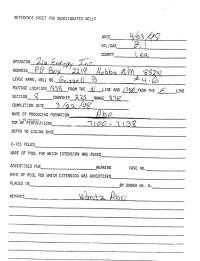 REFERENCE SHEET FOR UNDESIGNATED WELLS
DATE 4/23/98
OIL/GAS Oil
COUNTY Lea
OPERATOR Zia Energy Inc
ADDRESS PO Box 2219 Hobbs NM 88241
LEASE NAME, WELL NO. Grizzell B #4-8
FOOTAGE LOCATION FROM THE N LINE AND FROM THE E LINE
SECTION 8 TOWNSHIP 22S RANGE 37E
COMPLETION DATE 3/22/98
NAME OF PRODUCING FORMATION Abo
TOP OF PERFORATIONS 7100-7138
DEPTH TO CASING SHOE
C-123 FILED
NAME OF POOL FOR WHICH EXTENSION WAS ASKED
ADVERTISED FOR HEARING CASE NO.
NAME OF POOL FOR WHICH EXTENSION WAS ADVERTISED
PLACED IN BY ORDER NO. R-
REMARKS Wantz Abo